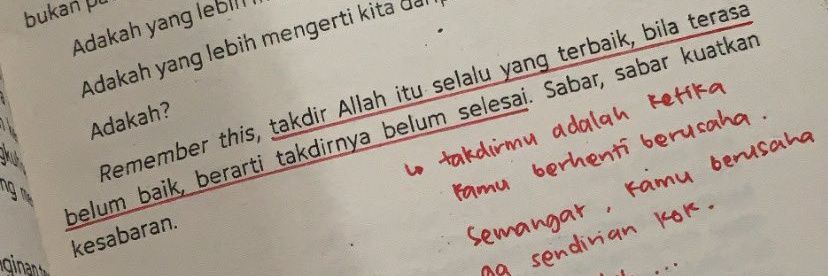 bukan
Adakah yang lebih
Adakah yang lebih mengerti kita
Adakah?
Remember this, takdir Allah itu selalu yang terbaik, bila terasa
belum baik, berarti takdirnya belum selesai. Sabar, sabar kuatkan
kesabaran.
↳ takdirmu adalah ketika
kamu berhenti berusaha.
Semangat, kamu berusaha
ga sendirian kok.